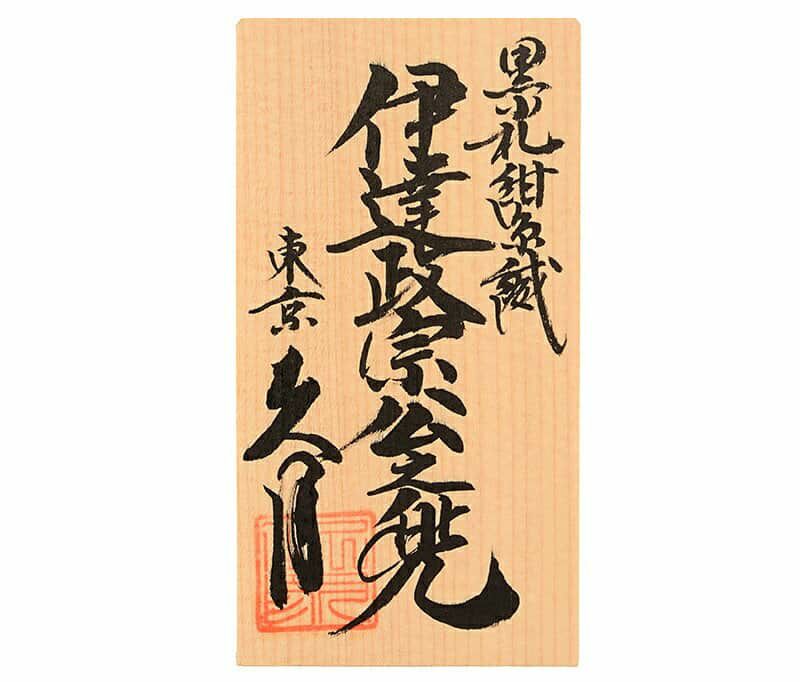 黒小札紺糸縅
伊達政宗公之兜
東京
久月